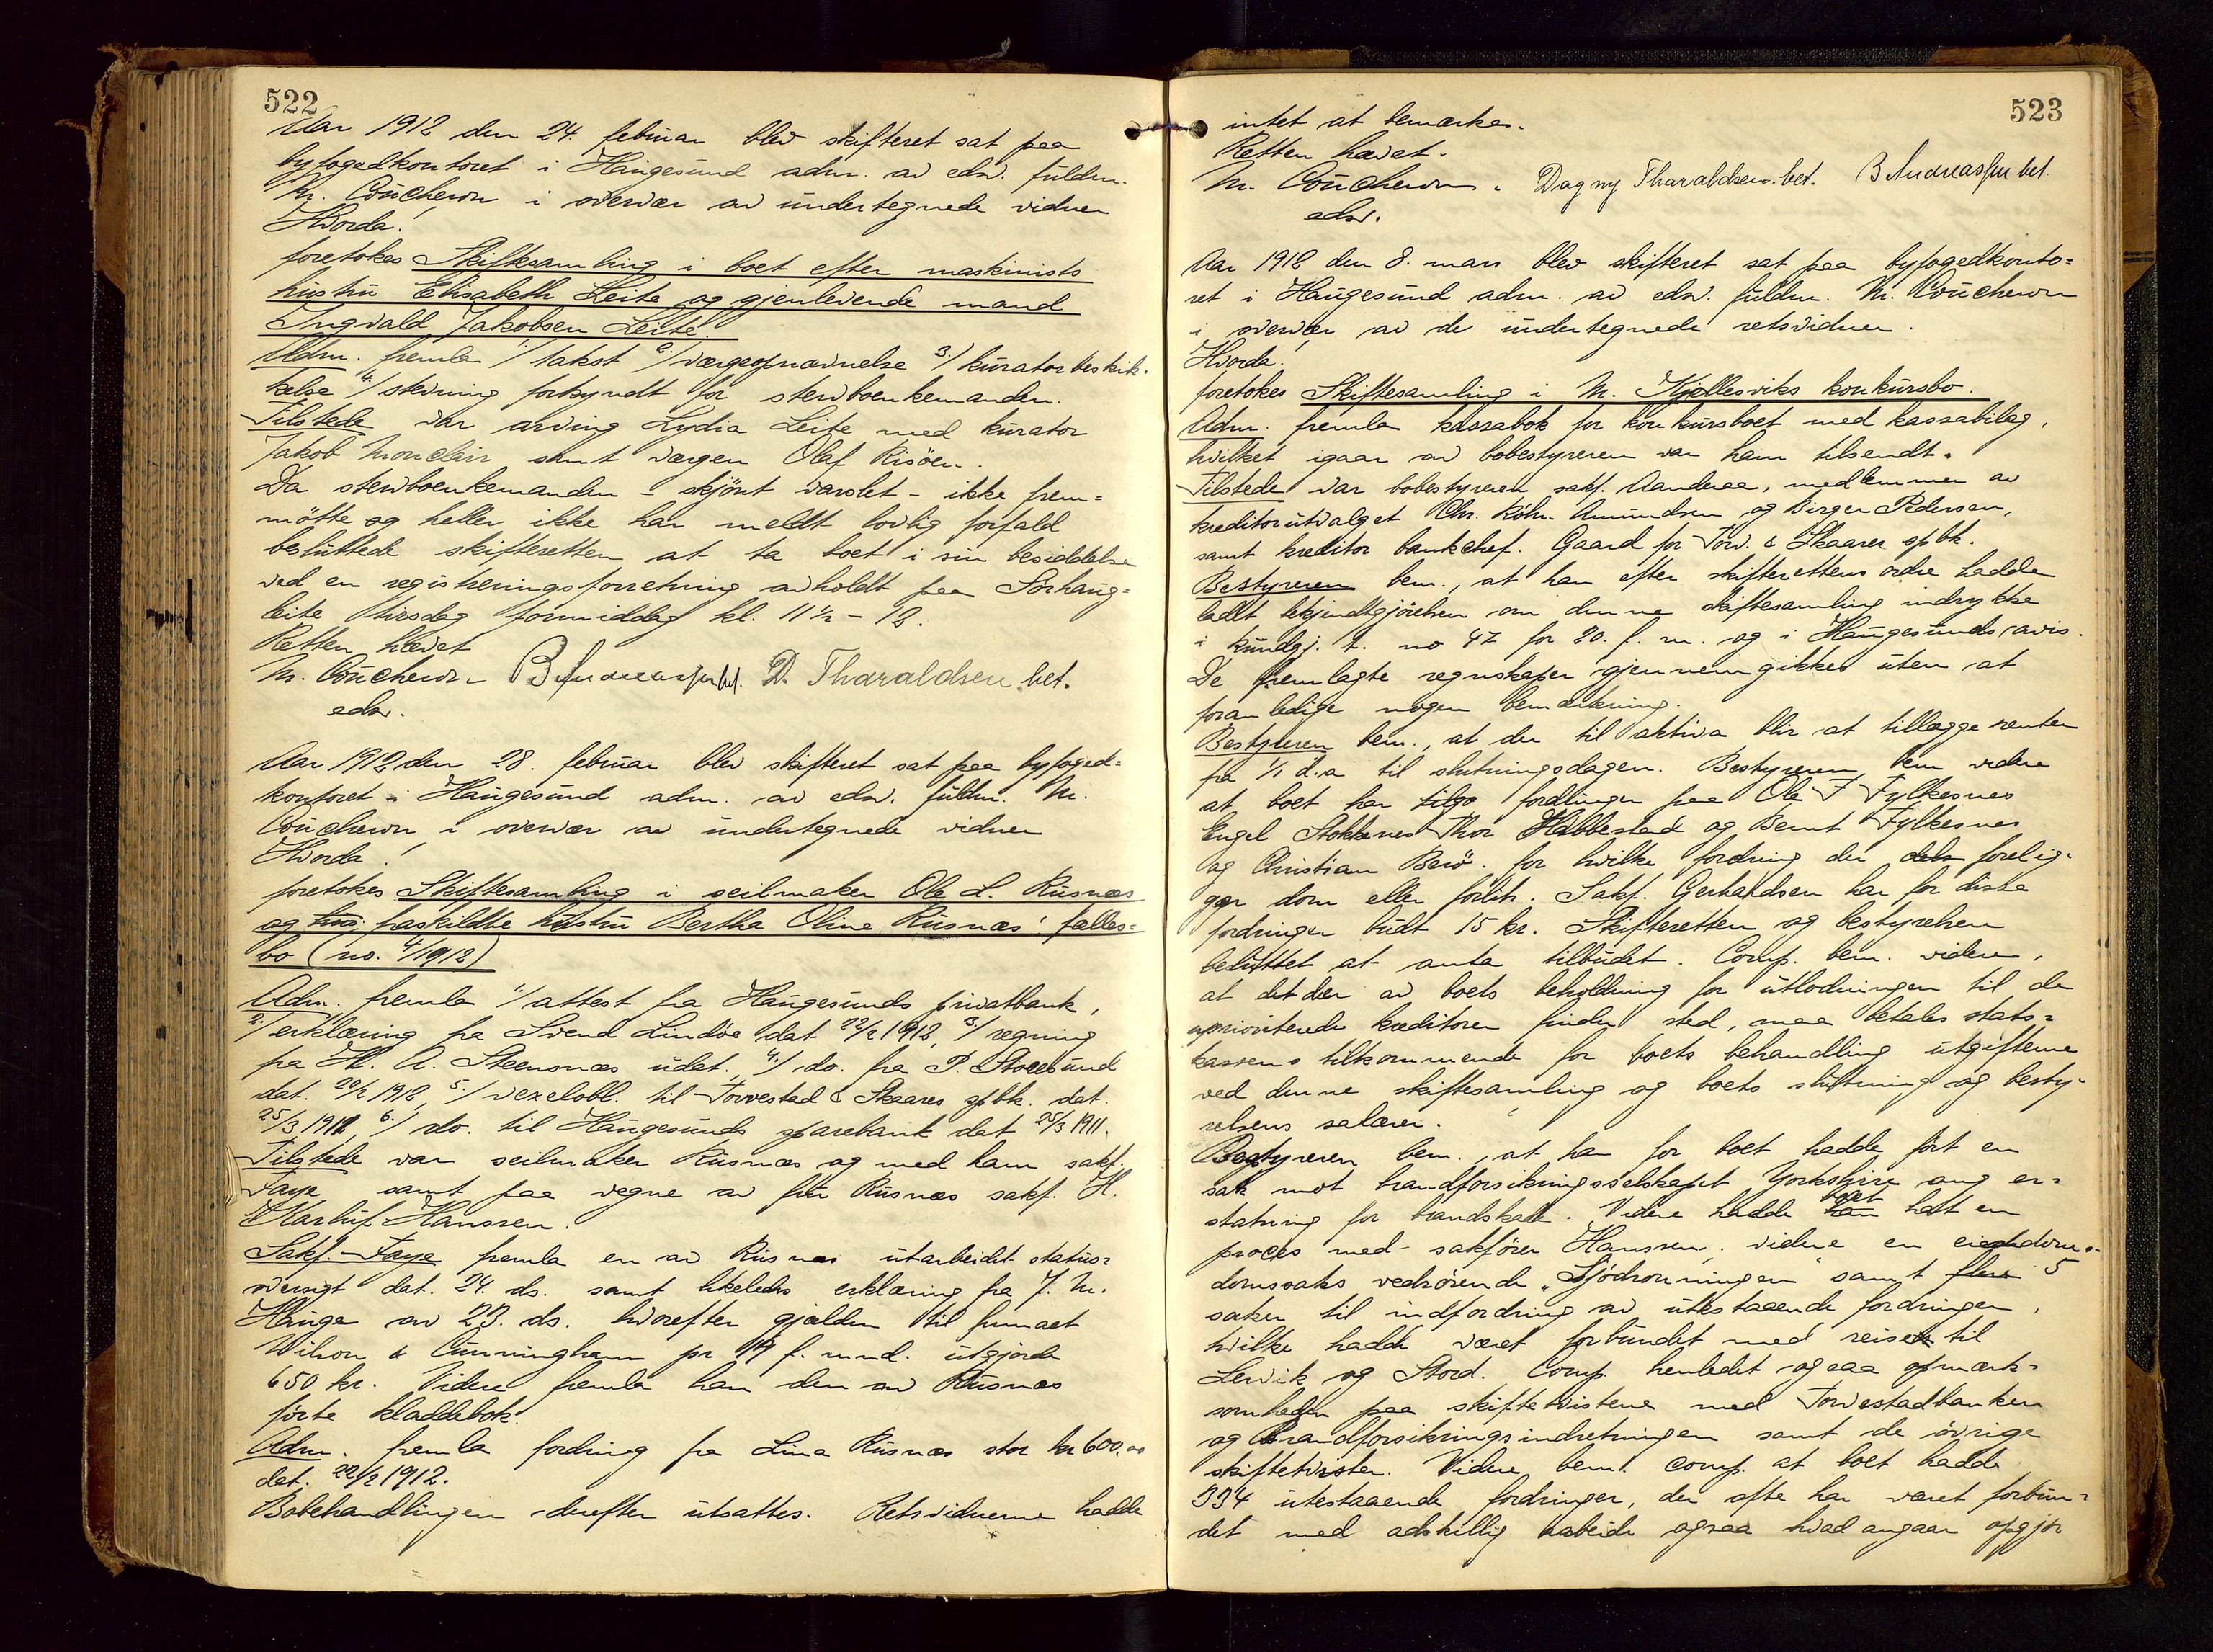 522
Aar 1912 den 24. februar blev skifteret sat paa
byfogedkontoret i Haugesund adm. av edsv. fuldm.
M. Coucheron i overvær av undertegnede vidner
Hvorda!
foretokes Skiftesamling i boet efter maskinists
hustru Elisabeth Leite og gjenlevende mand
Ingvald Jakobsen Leite.
Adm. fremla 1:/ takst 2:/ værgeopnævnelse 3:/ kuratorbeskik-
kelse 4:/ stevning forkyndt for stervboenkemanden.
Tilstede var arving Lydia Leite med kurator
Jakob Monclair samt værgen Olaf Risöen.
Da stervboenkemanden - skjönt varslet - ikke frem-
mötte og heller ikke har meldt lovlig forfald
besluttede skifteretten at ta boet i sin besiddelse
ved en registreringsforretning avholdt paa Sörhaug-
leite tirsdag formiddag kl. 11 1/2 - 12.
Retten hævet
M. Coucheron B Andreassen bet. D. Tharaldsen bet.
edsv.
Aar 1912 den 28. februar blev skifteret sat paa byfoged-
kontoret i Haugesund adm. av edsv. fuldm. M.
Coucheron i overvær av undertegnede vidner
Hvorda!
foretokes Skiftesamling i seilmaker Ole L. Risnæs
og hus. fraskildte hustru Bertha Oline Risnæs' fælles-
bo (no. 4/1912)
Adm. fremla 1:/ attest fra Haugesunds privatbank,
2:/ erklæring fra Svend Lindöe dat 22/2 1912, 3:/ regning
fra H. A. Steensnæs udat., 4:/ do. fra P. Storesund
dat. 20/2 1912, 5:/ vexelobl. til Torvestad & Skaares spbk. dat.
25/3 1911, 6:/ do. til Haugesunds sparebank dat 25/3 1911.
Tilstede var seilmaker Risnæs og med ham sakf.
Faye samt paa vegne av fru Risnæs sakf. H.
Harluf Hanssen.
Sakf. Faye fremla en av Risnæs utarbeidet status-
oversigt dat. 24. ds. samt likeledes erklæring fra J. M.
Hauge av 23. ds. hvorefter gjælden til firmaet
Wilson & Cunningham pr 19 f. mnd. utgjorde
650 kr. Videre fremla han den av Risnæs
förte kladdebok.
Adm. fremla fordring fra Lina Risnæs stor kr 600.00
dat. 22/2 1912.
Bobehandlingen derefter utsattes. Retsvidnerne hadde
523
intet at bemærke.
Retten hævet.
M. Coucheron. Dagny Tharaldsen. bet. B Andreassen bet.
edsv.
Aar 1912 den 8. mars blev skifteret sat paa byfogedkonto-
ret i Haugesund adm. av edsv. fuldm. M. Coucheron
i overvær av de undertegnede retsvidner.
Hvorda!
foretokes Skiftesamling i M. Kjellesviks konkursbo.
Adm. fremla kassabok for konkursboet med kassabilag,
hvilket igaar av bobestyreren var ham tilsendt.
Tilstede var bobestyreren sakf. Aanderaa, medlemmer av
kreditorutvalget Chr. Köhn Amundsen og Birger Pedersen,
samt kreditor bankchef. Gaard for Torv. & Skaares spbk.
Bestyreren bem., at han efter skifterettens ordre hadde
ladt bekjendtgjörelsen om denne skiftesamling indrykke
i kundgj. t. no 47 for 20. f. m. og i Haugesunds avis.
De fremlagte regnskaper gjennemgikkes uten at
foranledige nogen bemerkning.
Bestyreren bem., at der til aktiva blir at tillægge renter
fra 1/1 d.a til slutningsdagen. Bestyreren bem videre
at boet har tilgo fordringer paa Ole F Fylkesnes
Engel Stokkenes Thor Habbestad og Bernt Fylkesnes
og Christian Berö. for hvilke fordring der dels forelig-
ger dom eller forlik. Sakf. Gerhardsen har for disse
fordringer budt 15 kr. Skifteretten og bestyrelsen
besluttet at anta tilbudet. Comp. bem. videre,
at det der av boets beholdning for utlodningen til de
uprioriterede kreditorer finder sted, maa betales stats-
kassens tilkommende for boets behandling utgifterne
ved denne skiftesamling og boets slutning og besty-
relsens salærer.
Bestyreren bem., at han for boet hadde fört en
sak mot brandforsikringsselskapet Yorkshire ang er-
statning for brandskade. Videre hadde han boet hatt en
proces med sakförer Hanssen, videre en eiendoms-
domssaks vedrörende "Sjödronningen" samt flere 5
saker til indfordring av utestaaende fordringer,
hvilke hadde været forbundet med reiser til
Lervik og Stord. Comp. henledet ogsaa opmærk-
somheden paa skiftetvistene med Torvestadbanken
og Brandforsikringsindretningen samt de övrige
skiftetvister. Videre bem. comp. at boet hadde
334 utestaaende fordringer, der ofte har været forbun-
det med adskillig arbeide ogsaa hvad angaar opgjör